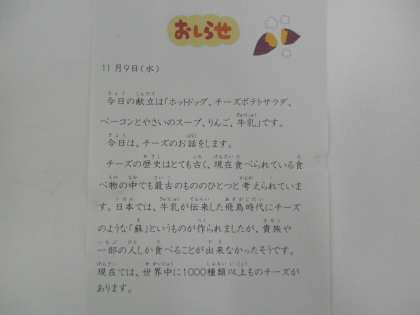 おしらせ
11月9日(水)
今日の献立は「ホットドッグ、チーズポテトサラダ、
ベーコンとやさいのスープ、りんご、牛乳」です。
今日は、チーズのお話をします。
チーズの歴史はとても古く、現在食べられている食
べ物の中でも最古のもののひとつと考えられていま
す。日本では、牛乳が伝来した飛鳥時代にチーズ
のような「蘇」というものが作られましたが、貴族や
一部の人しか食べることが出来なかったそうです。
現在では、世界中に1000種類以上ものチーズが
あります。